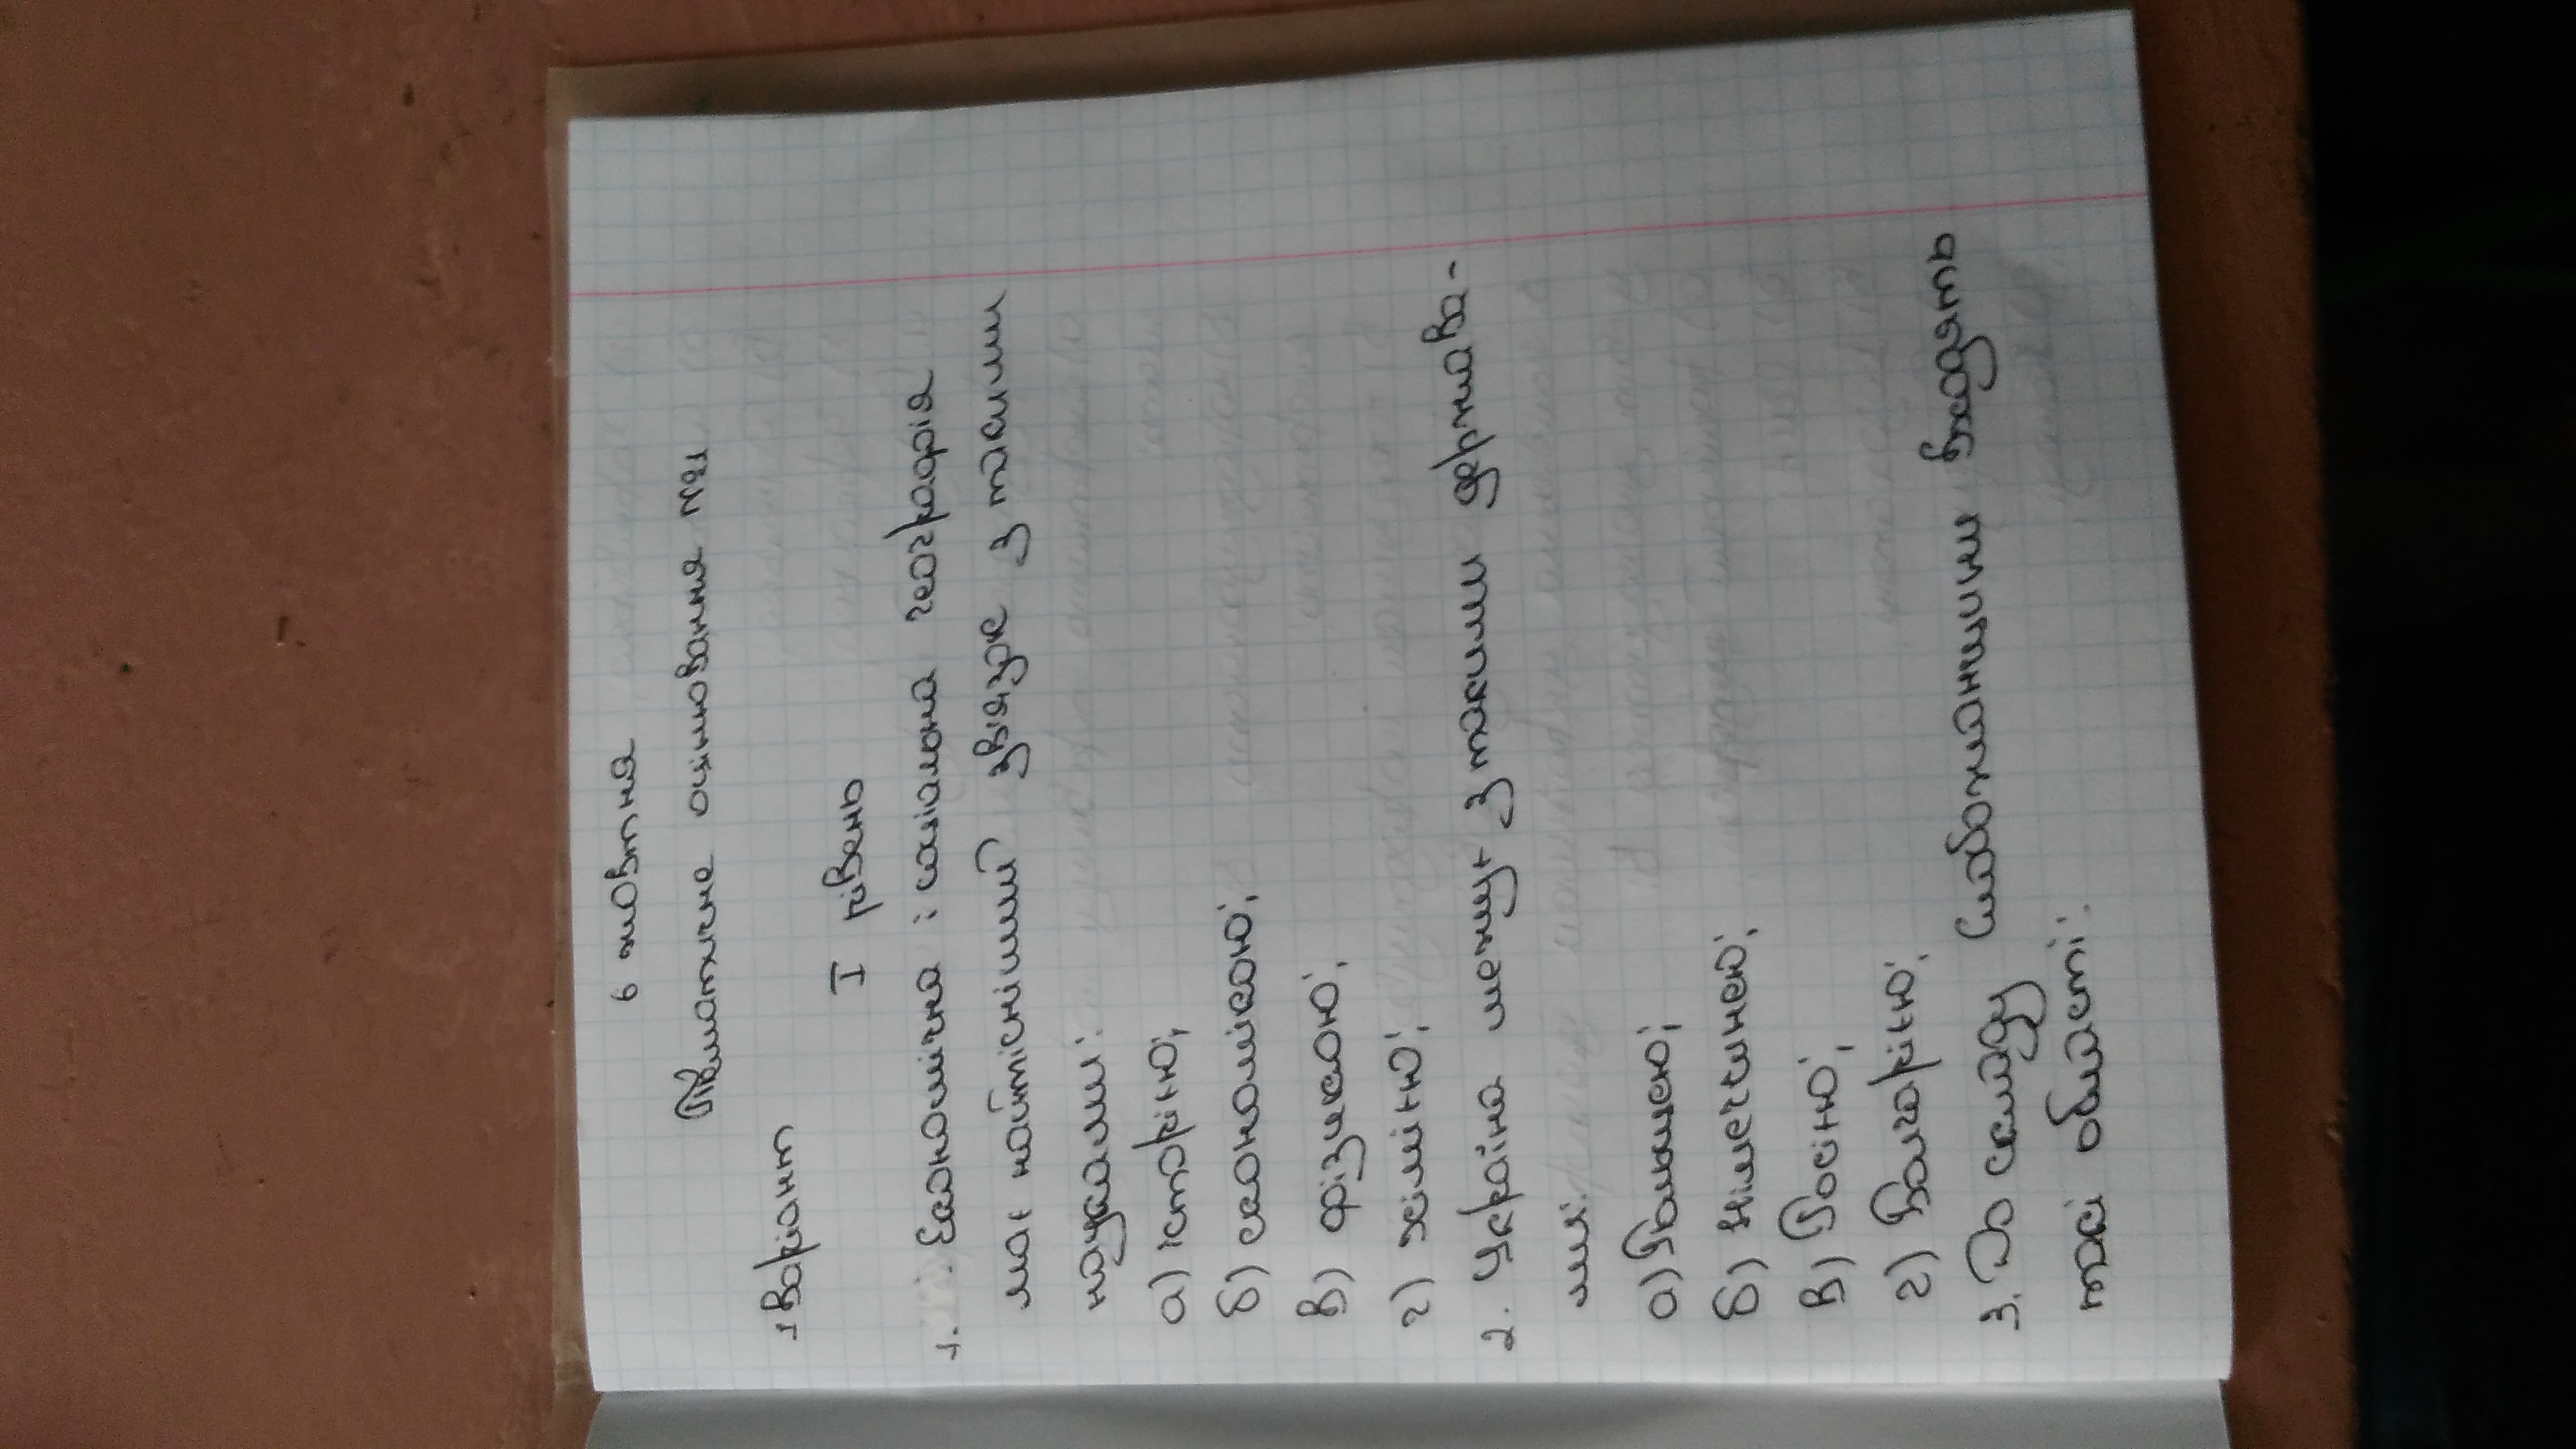 6 жовтня
Тематичне оцінювання №1
1 варіант
I рівень
1. Економічна і соціальна географія
має найтісніший звіязок з такими
науками:
а) історією;
б) економікою;
в) фізикою;
г) хімією;
2. Україна межує з такими держава-
ми:
а) Польщею;
б) Німеччиною;
в) Росією;
г) Болгарією;
3. До складу Слабожанщини входять
такі області: